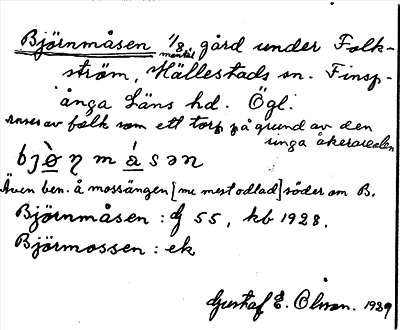 Björnmåsen 1/8 mantal, gård under Folk-
ström, Hällestads sn. Finsp-
ånga Läns hd. Ögl.
Anses av folk som ett torp på grund av den
ringa åkerarealen
bjö̀ɳmåsən
Även ben. å mossängen [nu mest odlad] söder om B.
Björnmåsen : J 55, kb 1928.
Björmossen : ek
Gustaf E. Olsson. 1939